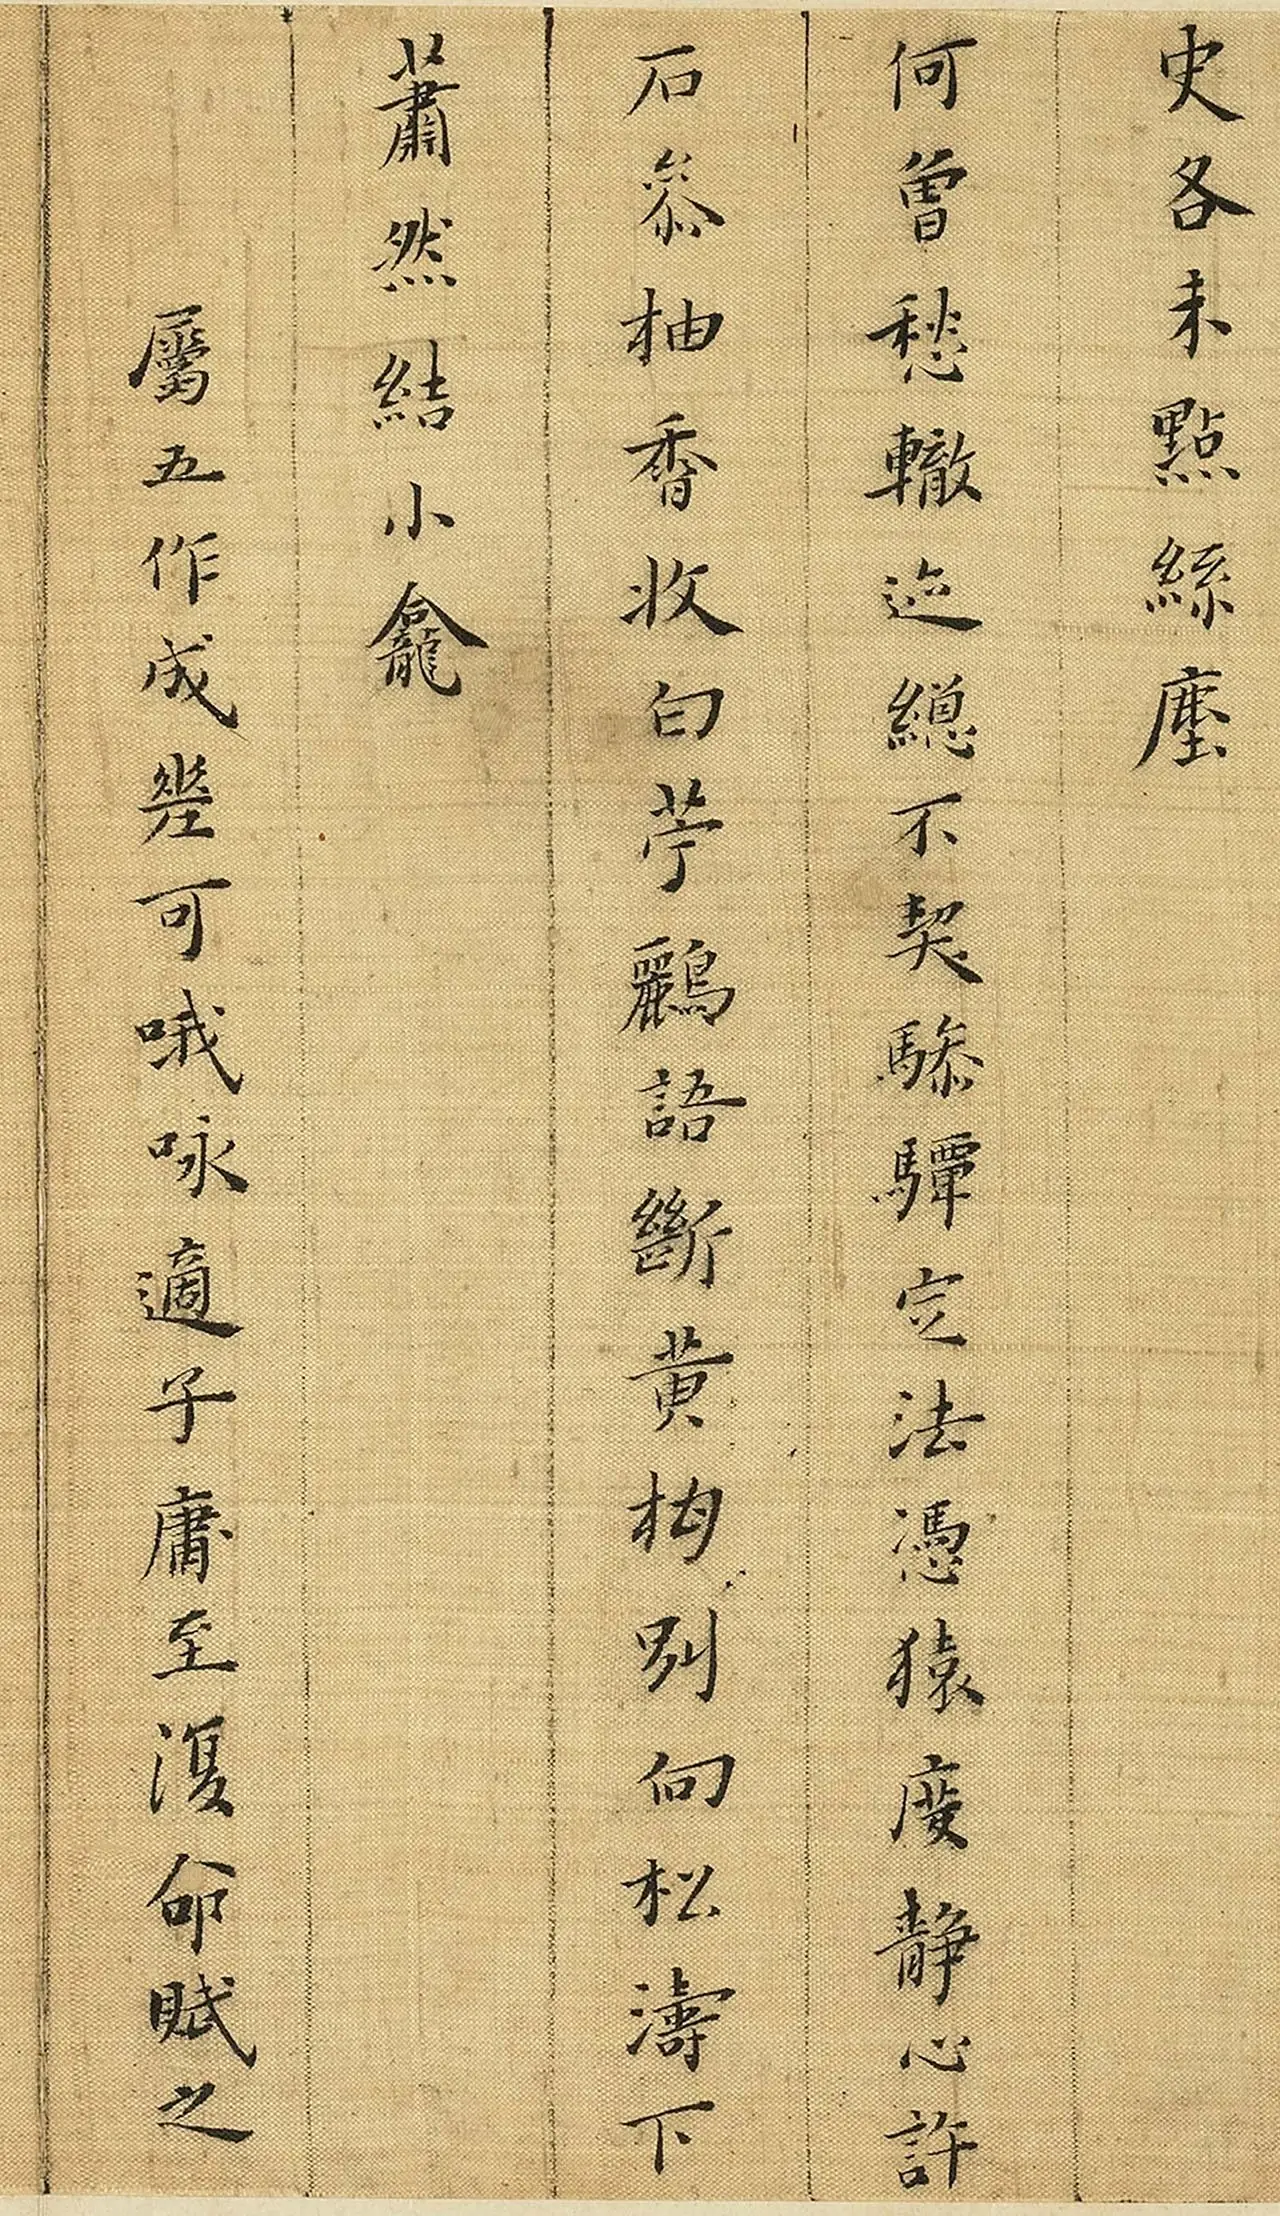 史各未點絲塵
何曾愁轍迹總不契驂驔定法憑猿度靜心許
石參柚香收白苧鸝語斷黃梅別向松濤下
蕭然結小龕
屬五作成差可哦咏適子庸至復命賦之